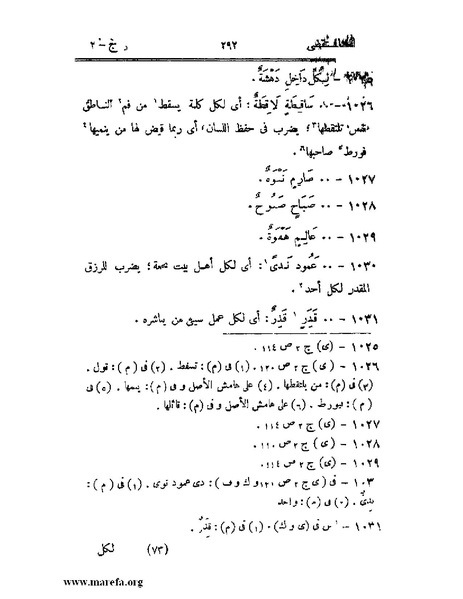 ٢٩٢ ر نج - ٢
لِكُلِّ دَاخِلٍ دَهْشَةٌ .
١٠٢٦ - .. سَاقِطَةٍ لَاقِطَةٌ : أى لكل كلمة يسقط١ من فم٢ الناطق
نفس تلتقطها٣ ؛ يضرب فى حفظ اللسان ، أى ربما قيض لها من ينميها٤
فورط٥ صاحبها٦
١٠٢٧ - .. صَارِمٍ نَبْوَةٌ .
١٠٢٨ - .. صَبَاحٍ صَبُوحٌ .
١٠٢٩ - .. عَالِمٍ هَفْوَةٌ .
١٠٣٠ - .. عَمُود نَدىً١ : أى لكل أهل بيت نجعة ؛ يضرب للرزق
المقدر لكل أحد٢ .
١٠٣١ - .. قَذَرٍ١ قَذِرٌ : أى لكل عمل سيئ من يباشره .
١٠٢٥ - (ى) ج ٢ ص ١١٤ .
١٠٢٦ - (ى) ج ٢ ص ١٢٠ . (١) فى (م) : تسقط . (٢) فى (م) : قول .
(٣) فى (م) : من يلتقطها . (٤) على هامش الأصل و فى (م) : ينمها . (٥) فى
(م) : فيورط . (٦) على هامش الأصل و فى (م) : قائلها .
١٠٢٧ - (ى) ج ٢ ص ١١٤ .
١٠٢٨ - (ى) ج ٢ ص ١١٠ .
١٠٢٩ - (ى) ج ٢ ص ١١٤ .
١٠٣ - فى (ى ج ٢ ص ١٢٠ و ك و ف) : دى عمود نوى . (١) فى (م) :
(م) : واحد
١٠٣١ - ليس فى (ى و ك) . (١) فى (م) : قَذِرٌ .
(٧٣) لكل
www.marefa.org